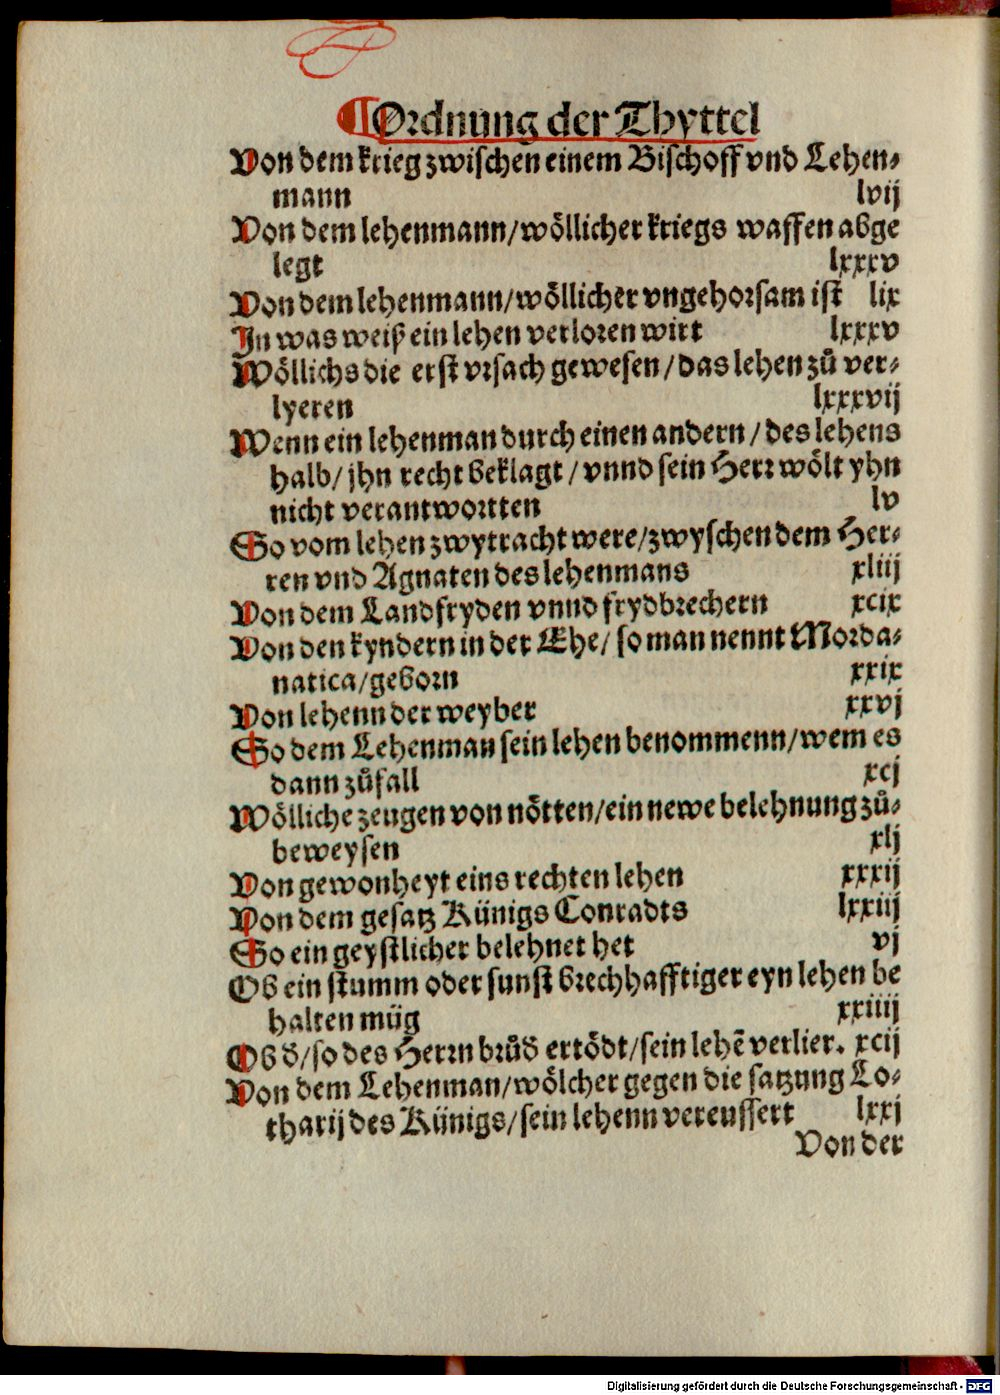 ¶ Ordnung der Thyttel
Von dem krieg zwischen einem Bischoff vnd Lehen⸗
mann lvij
Von dem lehenmann/wöllicher kriegs waffen abge
legt lxxxv
Von dem lehenmann/wöllicher vngehorsam ist lix
In was weiß ein lehen verloren wirt lxxxv
Wöllichs die erst vrsach gewesen/das lehen zů ver⸗
lyeren lxxxvij
Wenn ein lehenman durch einen andern/des lehens
halb/jhn recht beklagt/vnnd sein Herr wölt yhn
nicht verantwortten lv
So vom lehen zwytracht were/zwyschen dem Her⸗
ren vnd Agnaten des lehenmans xliij
Von dem Landfryden vnnd frydbrechern xcix
Von den kyndern in der Ehe/so man nennt Morda⸗
natica/geborn xxix
Von lehenn der weyber xxvj
So dem Lehenman sein lehen benommenn/wem es
dann zůfall xcj
Wölliche zeugen von nötten/ein newe belehnung zů⸗
beweysen xlj
Von gewonheyt eins rechten lehen xxxij
Von dem gesatz Künigs Conradts lxxiij
So ein geystlicher belehnet het vj
Ob ein stumm oder sunst brechhafftiger eyn lehen be
halten müg xxiiij
Ob d̕/so des Herrn brůd̕ ertödt/sein lehē verlier. xcij
Von dem Lehenman/wölcher gegen die satzung Lo⸗
tharij des Künigs/sein lehenn vereussert lxxj
Von der
Digitalisierung gefördert durch die Deutsche Forschungsgemeinschaft - DFG